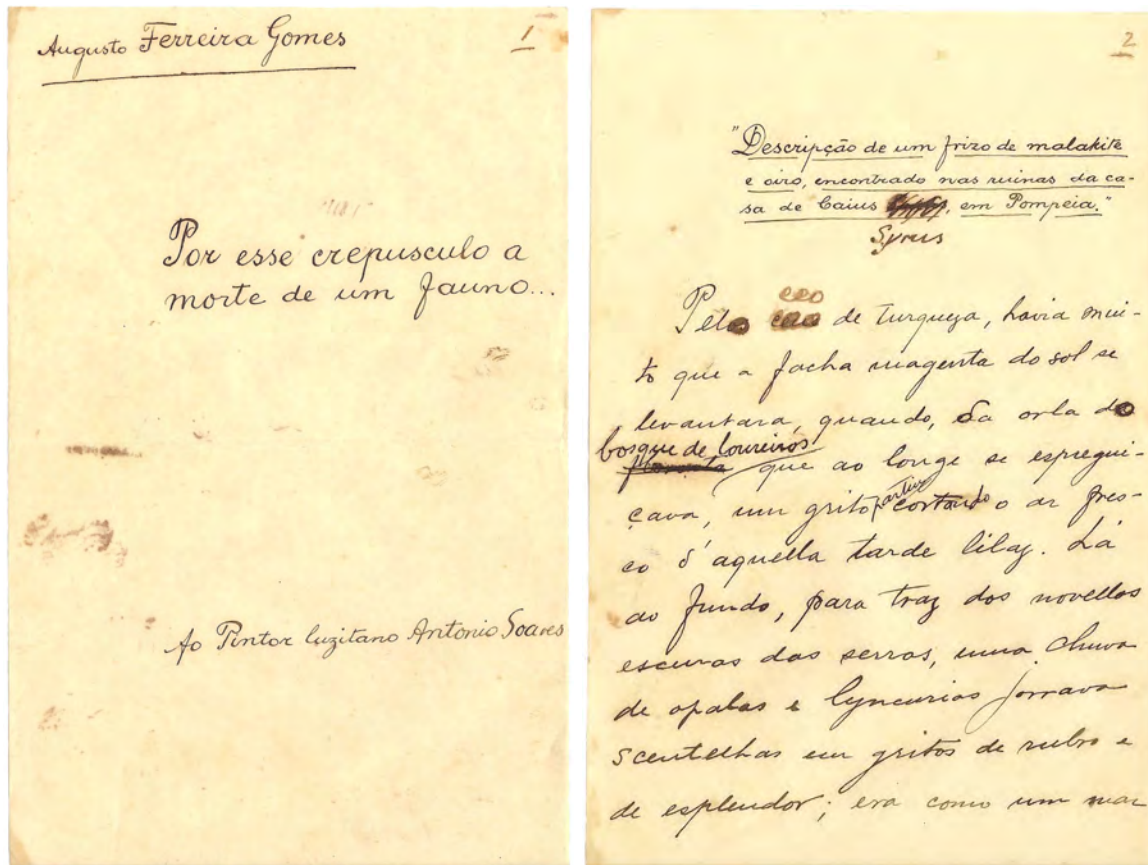 Augusto Ferreira Gomes
1
Por esse crepusculo a
morte de um fauno...
Ao Pintor luzitano António Soares
2
"Descripção de um frizo de malakite
e oiro, encontrado nas ruinas da ca-
sa de Caius em Pompeia."
Syrus
ceo
Pelo de turqueza, havia mui-
to que a facha magenta do sol se
levantara, quando, da orla do
bosque de loureiros
que ao longe se espregui-
çava, um grito partiu cortando o ar fres-
co d'aquella tarde lilaz. Lá
ao fundo, para traz dos novellos
escuros das serras, uma chuva
de opalas e lyncurias jorrava
scentelhas em gritos de rubro e
de esplendor; era como um mar